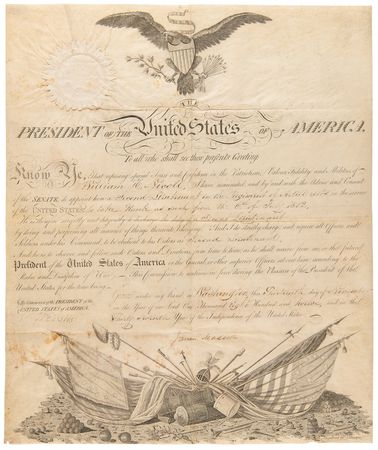 THE
PRESIDENT OF THE United States OF AMERICA.
To all who shall see these presents Greeting
Know Ye, That reposing special Trust and Confidence in the Patriotism, Valour, Fidelity and Abilities of
William I have nominated, and by and with the Advice and Consent
of the SENATE do appoint him a Second Lieutenant in the Regiment of in the service of
the UNITED STATES: to Rank as such from 1812
He is therefore carefully and diligently to discharge the duty of Second Lieutenant
by doing and performing all manner of things thereunto belonging. And I do strictly charge and require all Officers and
Soldiers under his Command, to be obedient to his Orders as Second Lieutenant.
And he is to observe and follow such Orders and Directions, from time to time, as he shall receive from me, or the future
President of the United States of America or the General or other Superior Officers set over him, according to the
Rules and Discipline of War. This Commission to continue in force during the Pleasure of the President of the
United States for the time being.
Given under my Hand, at Washington, this day of
By Command of the PRESIDENT of the
in the Year of our Lord One Thousand Eight Hundred and and in the
UNITED STATES OF AMERICA.
Year of the Independence of the United States.
James Madison